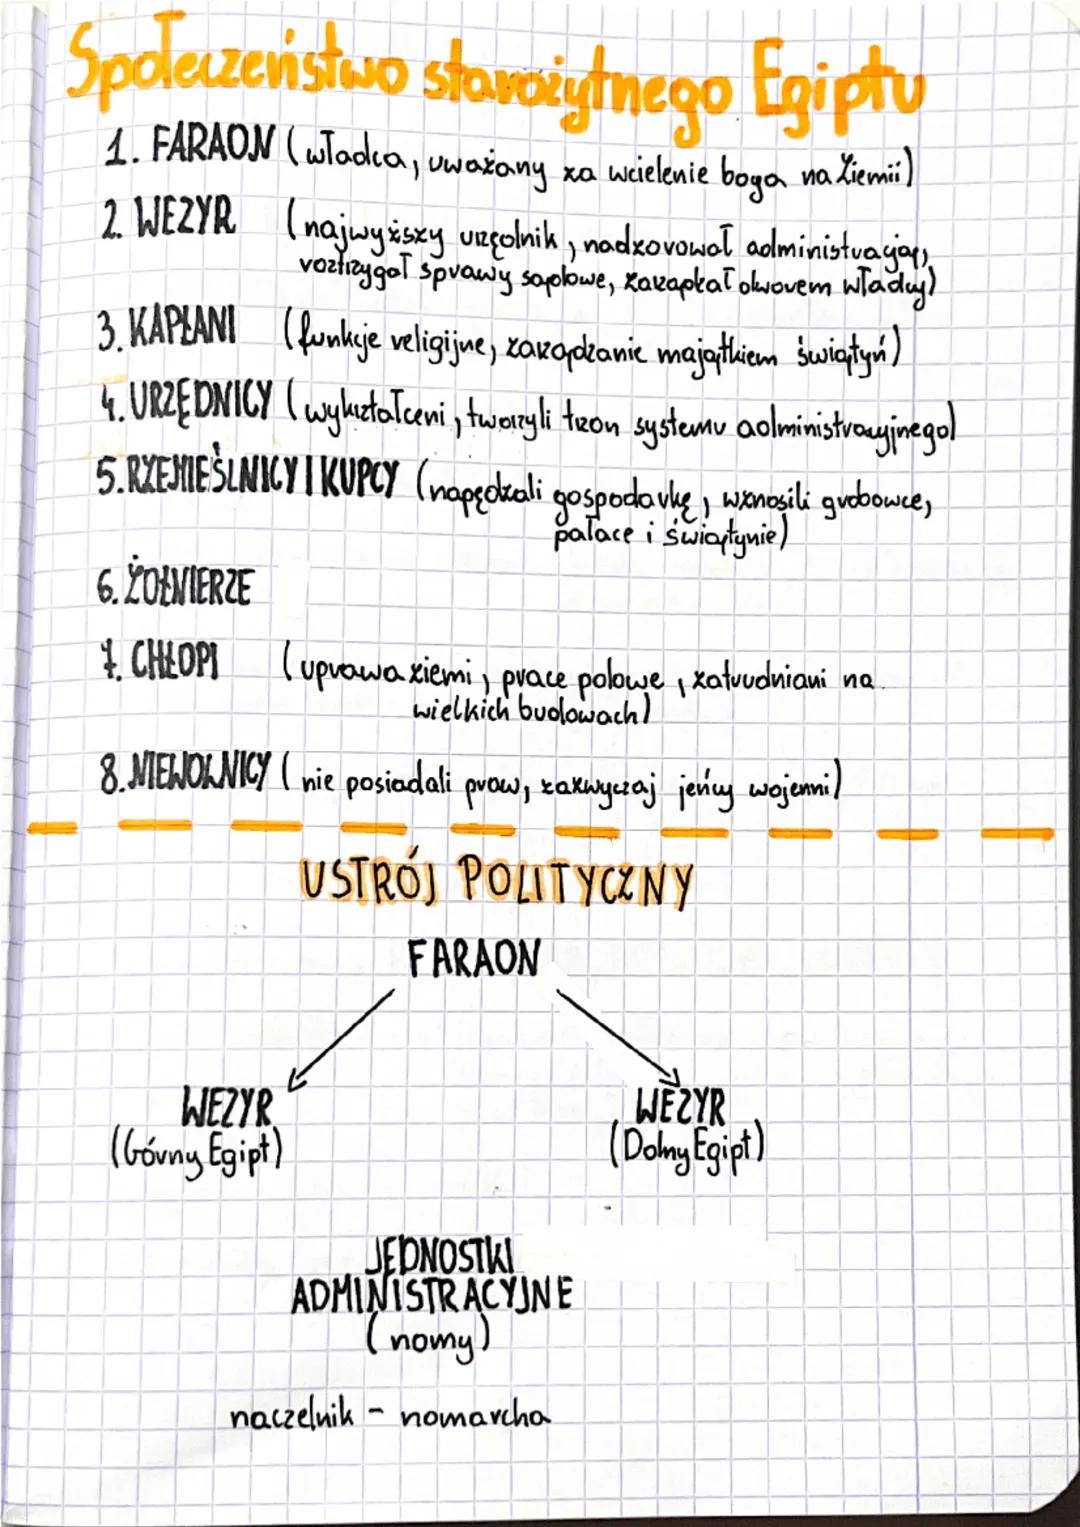 Społeczeństwo starożytnego Egiptu
1. FARAON (władca, uważany za wcielenie boga na Ziemii)
2. WEZYR (najwyższy urzędnik, nadzorował administrację,
roztrzygał sprawy sądowe, zarządzał dworem władcy)
3. KAPŁANI (funkcje religijne, zarządzanie majątkiem świątyń)
4. URZĘDNICY (wykształceni, tworzyli trzon systemu administracyjnego)
5. RZEMIEŚLNICY I KUPCY (napędzali gospodarkę, wznosili grobowce,
pałace i świątynie)
6. ŻOŁNIERZE
7. CHŁOPI (uprawa ziemi, prace polowe, zatrudniani na
wielkich budowach)
8. NIEWOLNICY (nie posiadali praw, zazwyczaj jeńcy wojenni)
USTRÓJ POLITYCZNY
FARAON
WEZYR WEZYR
(Górny Egipt) (Dolny Egipt)
JEDNOSTKI
ADMINISTRACYJNE
(nomy)
naczelnik - nomarcha